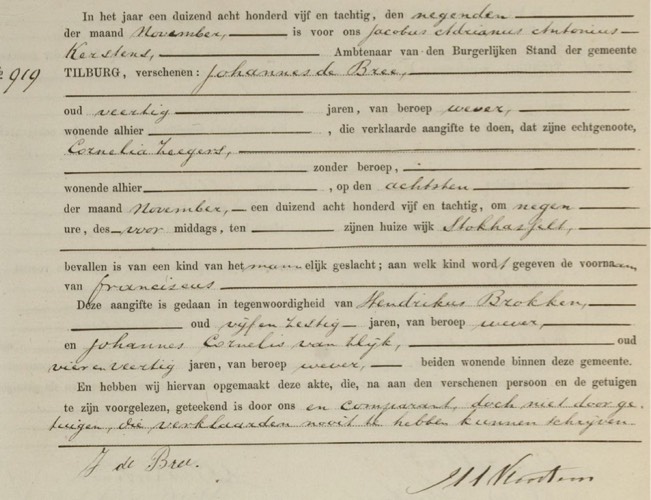 In het jaar een duizend acht honderd vijf en tachtig, den negenden
der maand November, is voor ons Jacobus Adrianus Antonius
Kerstens, Ambtenaar van den Burgerlijken Stand der gemeente
919 TILBURG, verschenen: Johannes de Bree,
oud veertig jaren, van beroep wever,
wonende alhier , die verklaarde aangifte te doen, dat zijne echtgenoote,
Cornelia Zeegers,
zonder beroep,
wonende alhier , op den achtsten
der maand November, een duizend acht honderd vijf en tachtig, om negen
ure, des voor middags, ten zijnen huize wijk Stokhasselt,
bevallen is van een kind van het mannelijk geslacht; aan welk kind wordt gegeven de voornaam,
van Franciscus
Deze aangifte is gedaan in tegenwoordigheid van Hendrikus Brokken,
oud vijf en zestig jaren, van beroep wever,
en Johannes Cornelis van Dijk, oud
vier en veertig jaren, van beroep wever, beiden wonende binnen deze gemeente.
En hebben wij hiervan opgemaakt deze akte, die, na aan den verschenen persoon en de getuigen
te zijn voorgelezen, geteekend is door ons en comparant, doch niet door ge-
tuigen, die verklaarden nooit te hebben kunnen schrijven
J de Bree.